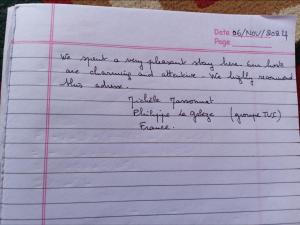 Date 06/Nov/2024
Page
We spent a very pleasant stay here. Our hosts
are charming and attentive. We highly recommend
this adresse.
Michèle Massonnat
Philippe Le (groupe TUI)
France.